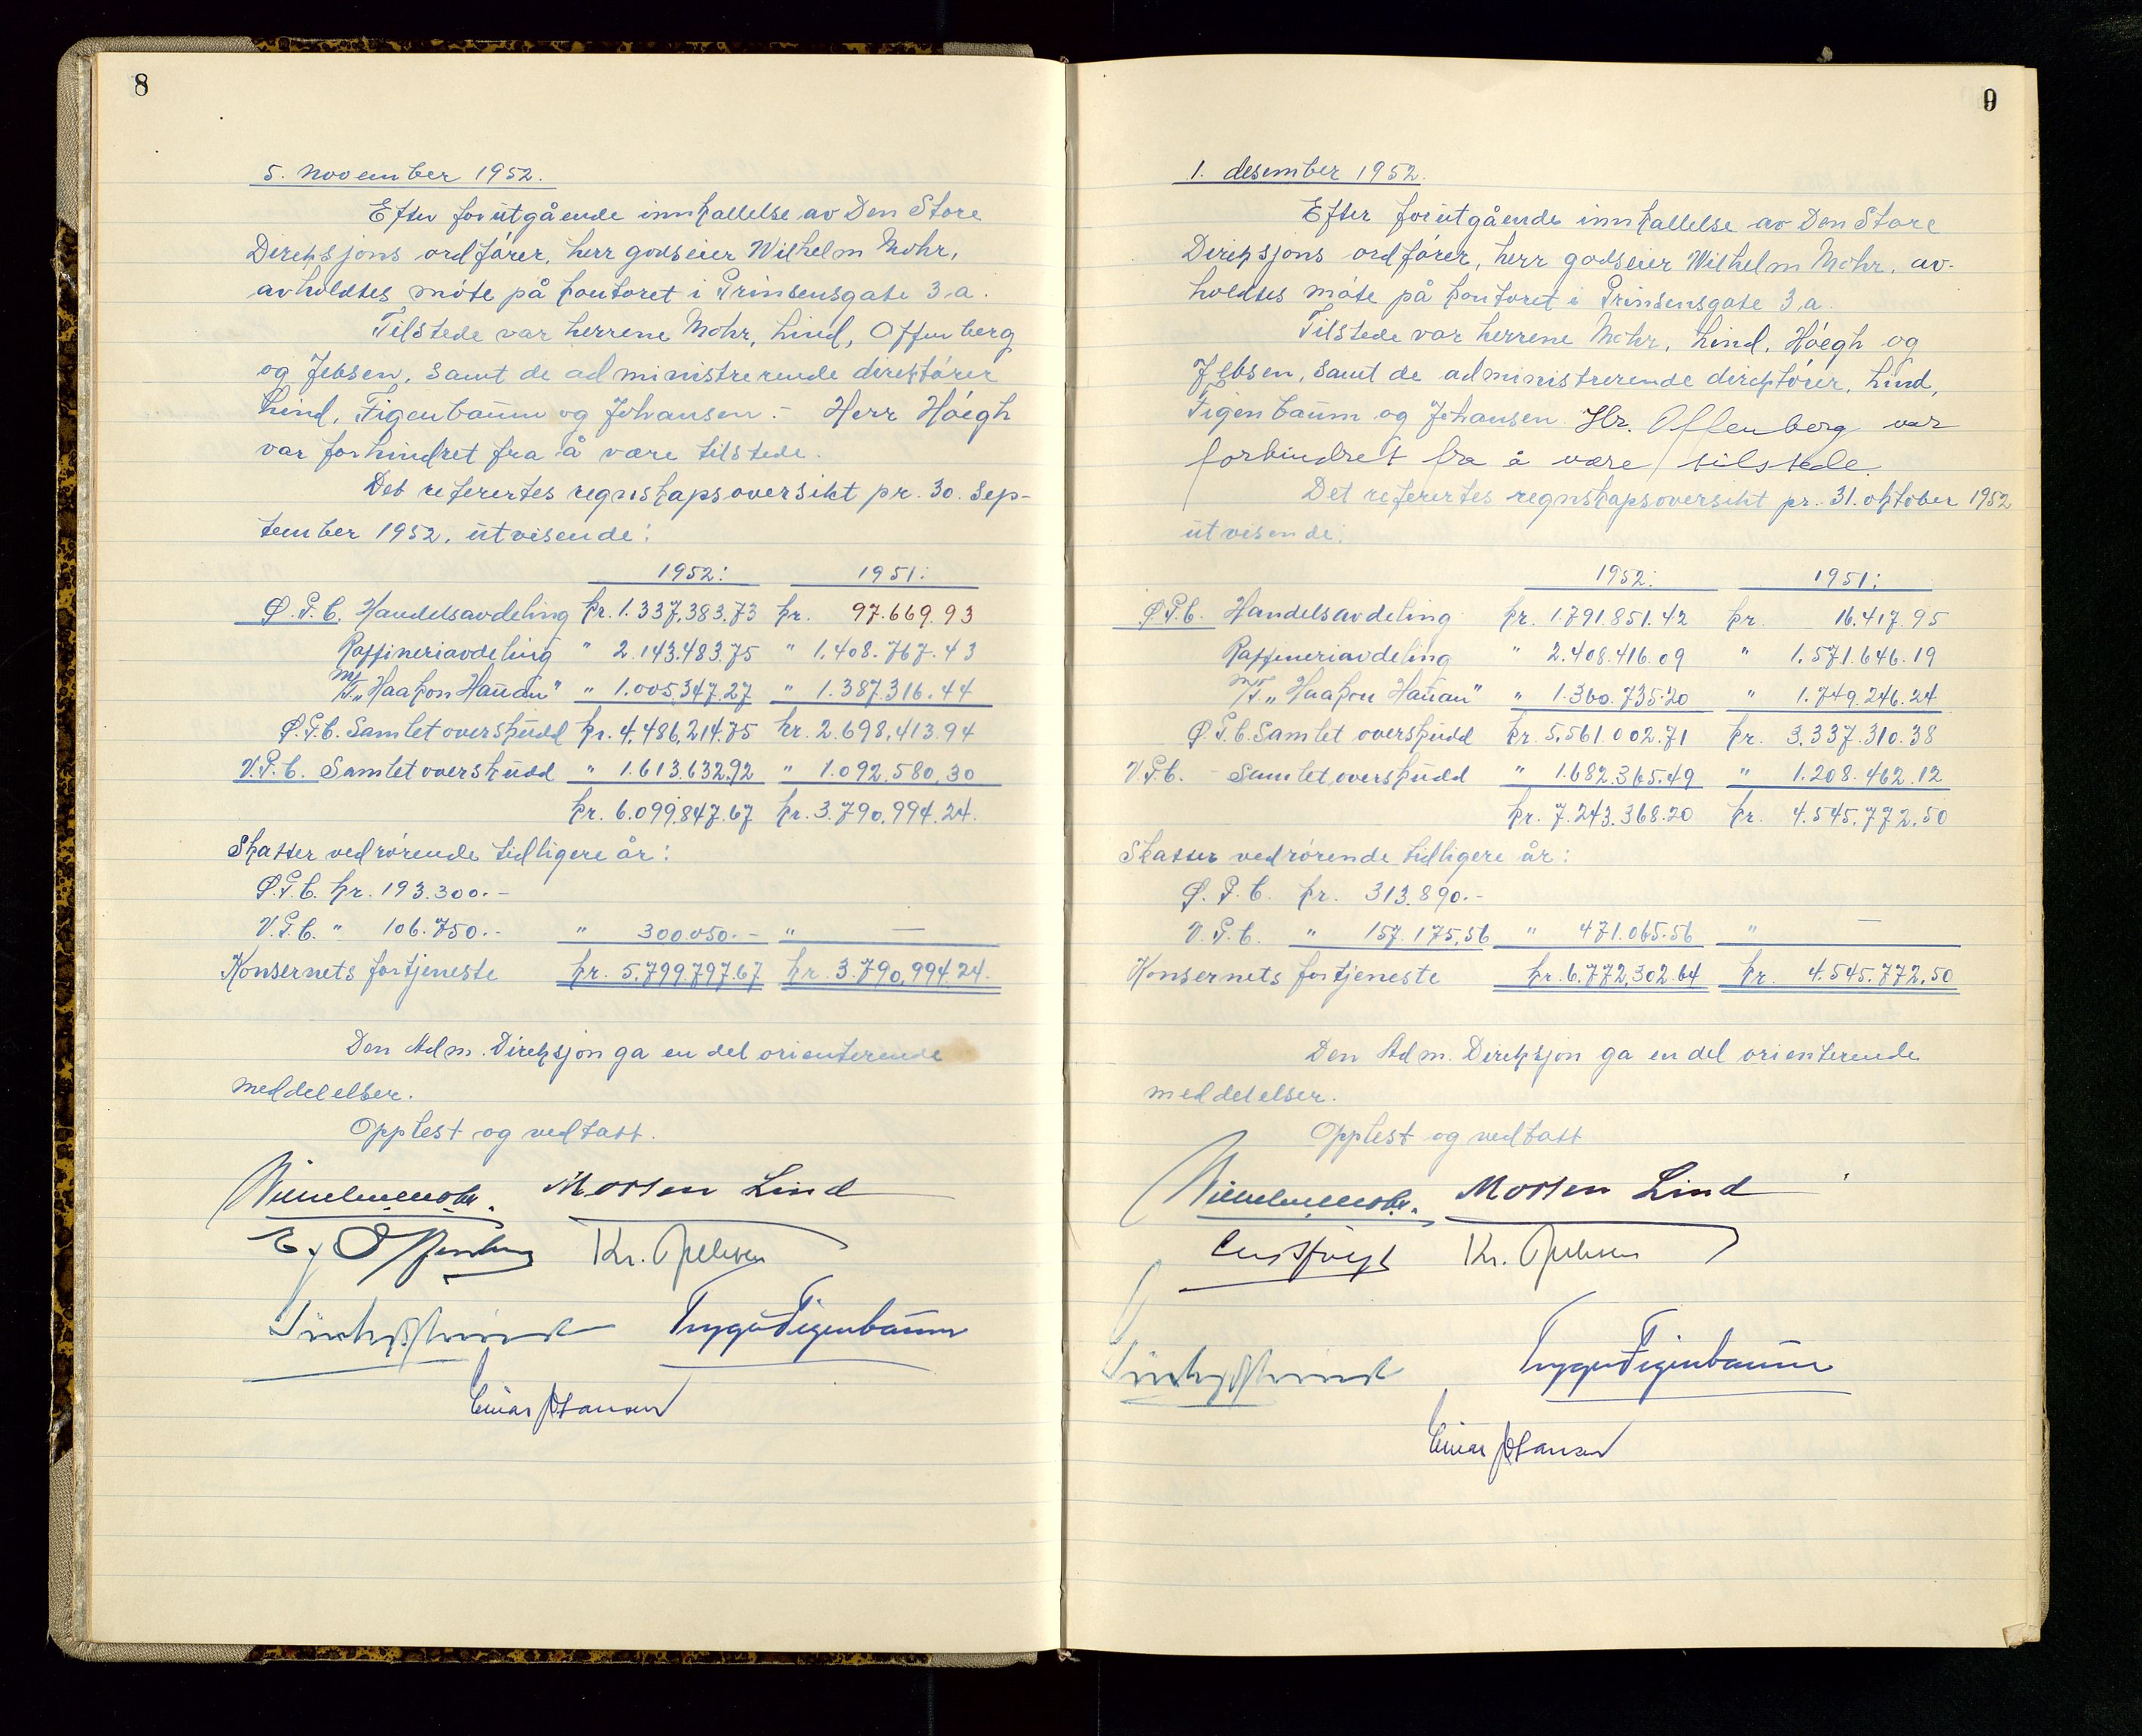 8
5. november 1952.
Efter forutgående innkallelse av Den Store
Direksjons ordfører, herr godseier Wilhelm Mohr,
avholdtes møte på kontoret i Prinsensgate 3.a.
Tilstede var herrene Mohr, Lind, Offenberg
og Jebsen, samt de administrerende direktører
Lind, Figenbaum og Johansen. - Herr Höegh
var forhindret fra å være tilstede.
Det referertes regnskapsoversikt pr. 30. sep-
tember 1952, utvisende:
1952: 1951:
Ø.P.C. Handelsavdeling kr. 1.337,383.73 kr. 97.669.93
Raffineriavdeling " 2.143.483.75 " 1.408.767.43
M/T. „Haakon Hauan" " 1.005,347.27 " 1.387.316.44
Ø.P.C. Samlet overskudd kr. 4.486,214.75 kr. 2.698,413.94
V.P.C. Samlet overskudd " 1.613.632.92 " 1.092.580,30
kr. 6.099.847.67 kr. 3.790,994.24.
Skatter vedrørende tidligere år:
Ø.P.C. kr. 193.300.-
V.P.C. " 106.750.- " 300.050.- " —
Konsernets fortjeneste kr. 5.799.797.67 kr. 3.790,994.24.
Den Adm. Direksjon ga en del orienterende
meddelelser.
Opplest og vedtatt.
Wilhelm Mohr. Morten Lind
E. J. Offenberg Kr. Jebsen
Trygve Figenbaum
Einar Johansen
9
1. desember 1952.
Efter forutgående innkallelse av Den Store
Direksjons ordfører, herr godseier Wilhelm Mohr, av-
holdtes møte på kontoret i Prinsensgate 3.a.
Tilstede var herrene Mohr, Lind, Höegh og
Jebsen, samt de administrerende direktører, Lind,
Figenbaum og Johansen. Hr. Offenberg var
forhindret fra å være tilstede.
Det referertes regnskapsoversikt pr. 31. oktober 1952
utvisende:
1952: 1951:
Ø.P.C. Handelsavdeling kr. 1.791.851.42 kr. 16.417.95
Raffineriavdeling " 2.408.416.09 " 1.571.646.19
M/T „Haakon Hauan" " 1.360.735.20 " 1.749.246.24
Ø.P.C. Samlet overskudd kr. 5.561.002.71 kr. 3.337.310.38
V.P.C. - Samlet overskudd " 1.682.365.49 " 1.208.462.12
kr. 7.243.368.20 kr. 4.545.772.50
Skatter vedrørende tidligere år:
Ø.P.C. kr. 313.890.-
V.P.C. " 157.175,56 " 471.065.56 " —
Konsernets fortjeneste kr. 6.772,302.64 kr. 4.545.772.50
Den Adm. Direksjon ga en del orienterende
meddelelser.
Opplest og vedtatt
Wilhelm Mohr. Morten Lind
Leif Höegh Kr. Jebsen
Trygve Figenbaum
Einar Johansen